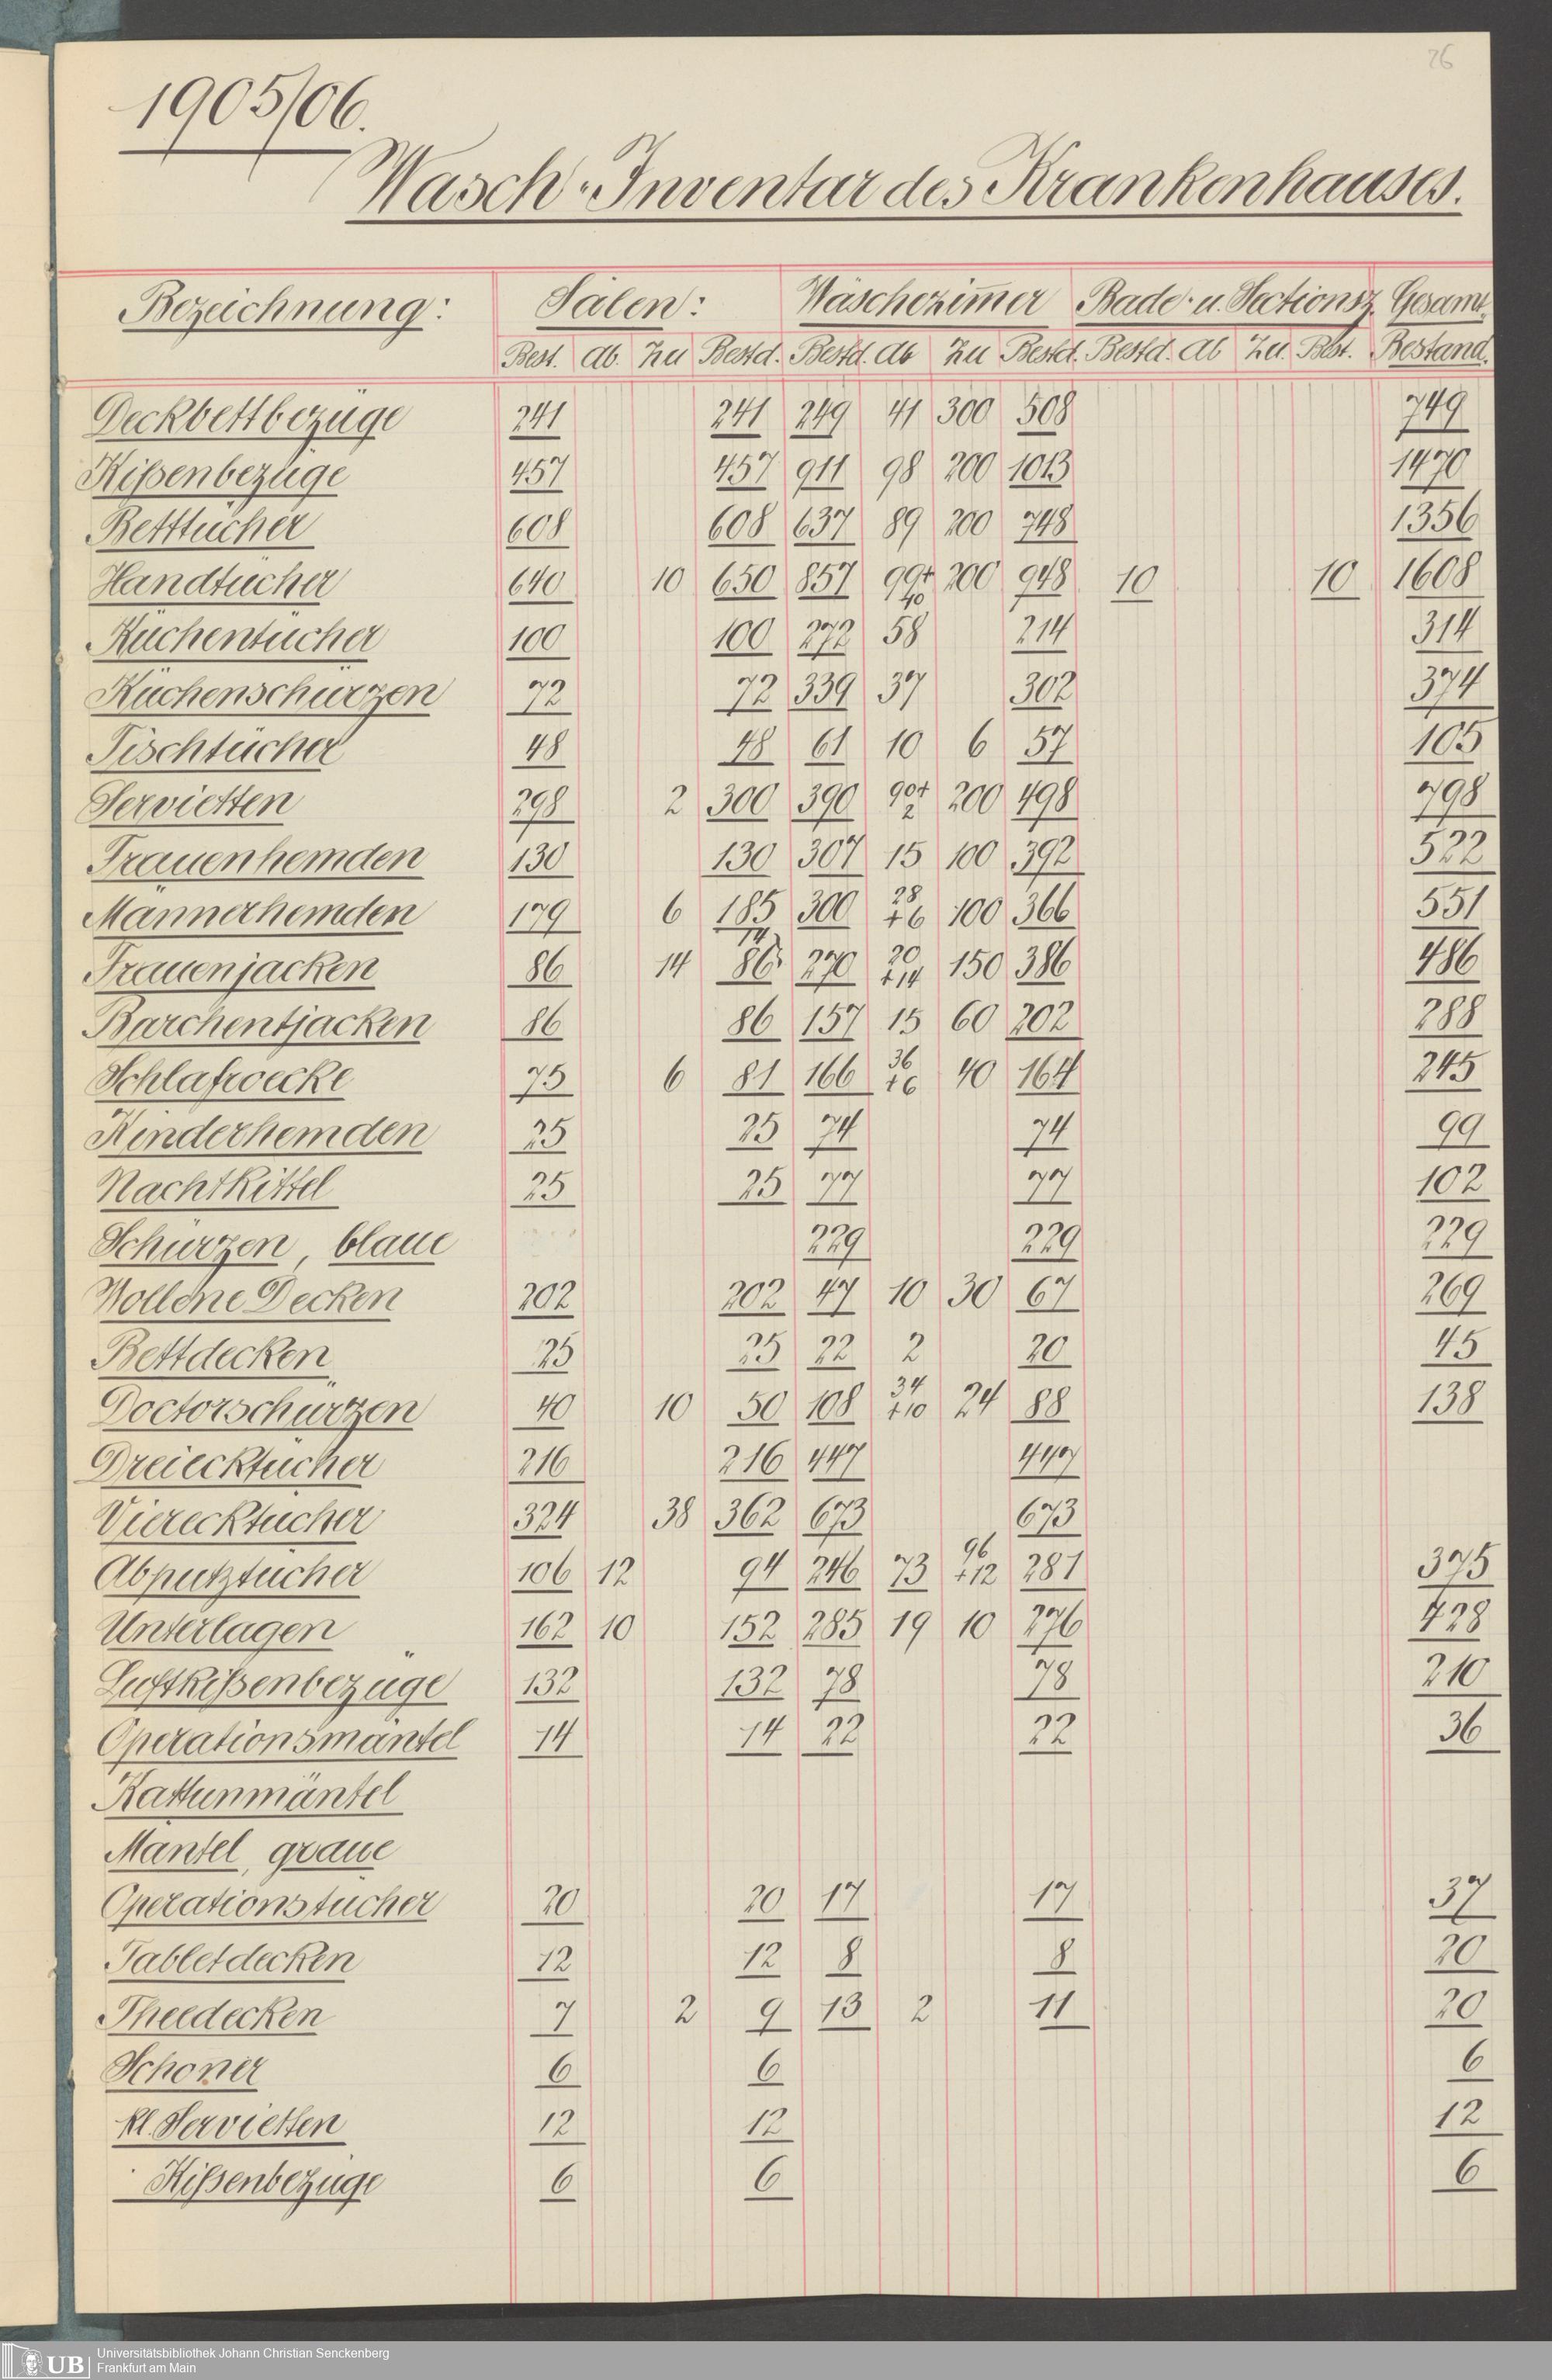 26
1905/06.
Wasch-Inventar des Krankenhauses.
Bezeichnung: Sälen: Wäschezim̄er Bade- u. Sectionsz. Gesamt-
Best. Ab. Zu Bestd. Bestd. Ab Zu Bestd. Bestd. Ab Zu. Best. Bestand.
Deckbettbezüge 241 241 249 41 300 508 749
Kißenbezüge 457 457 911 98 200 1013 1470
Betttücher 608 608 637 89 200 748 1356
Handtücher 640 10 650 857 99+40 200 948 10 10 1608
Küchentücher 100 100 272 58 214 314
Küchenschürzen 72 72 339 37 302 374
Tischtücher 48 48 61 10 6 57 105
Servietten 298 2 300 390 90+2 200 498 798
Frauenhemden 130 130 307 15 100 392 522
Männerhemden 179 6 185 300 28+6 100 366 551
Frauenjacken 86 14 14 86 270 20+14 150 386 486
Barchentjacken 86 86 157 15 60 202 288
Schlafroecke 75 6 81 166 36+6 40 164 245
Kinderhemden 25 25 74 74 99
Nachtkittel 25 25 77 77 102
Schürzen, blaue 229 229 229
Wollene Decken 202 202 47 10 30 67 269
Bettdecken 25 25 22 2 20 45
Doctorschürzen 40 10 50 108 34+10 24 88 138
Dreiecktücher 216 216 447 447
Vierecktücher 324 38 362 673 673
Abputztücher 106 12 94 246 73 96+12 281 375
Unterlagen 162 10 152 285 19 10 276 428
Luftkißenbezüge 132 132 78 78 210
Operationsmäntel 14 14 22 22 36
Kattunmäntel
Mäntel, graue
Operationstücher 20 20 17 17 37
Tabletdecken 12 12 8 8 20
Theedecken 7 2 9 13 2 11 20
Schoner 6 6 6
kl. Servietten 12 12 12
Kißenbezüge 6 6 6
UB Universitätsbibliothek Johann Christian Senckenberg
Frankfurt am Main